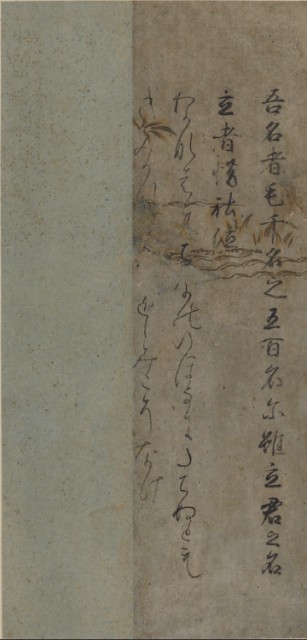 吾名者毛千名之五百名尓雖立君之名
立者惜社泣
わかなはもちなのいほなにたちぬとも
をしみこそなけ